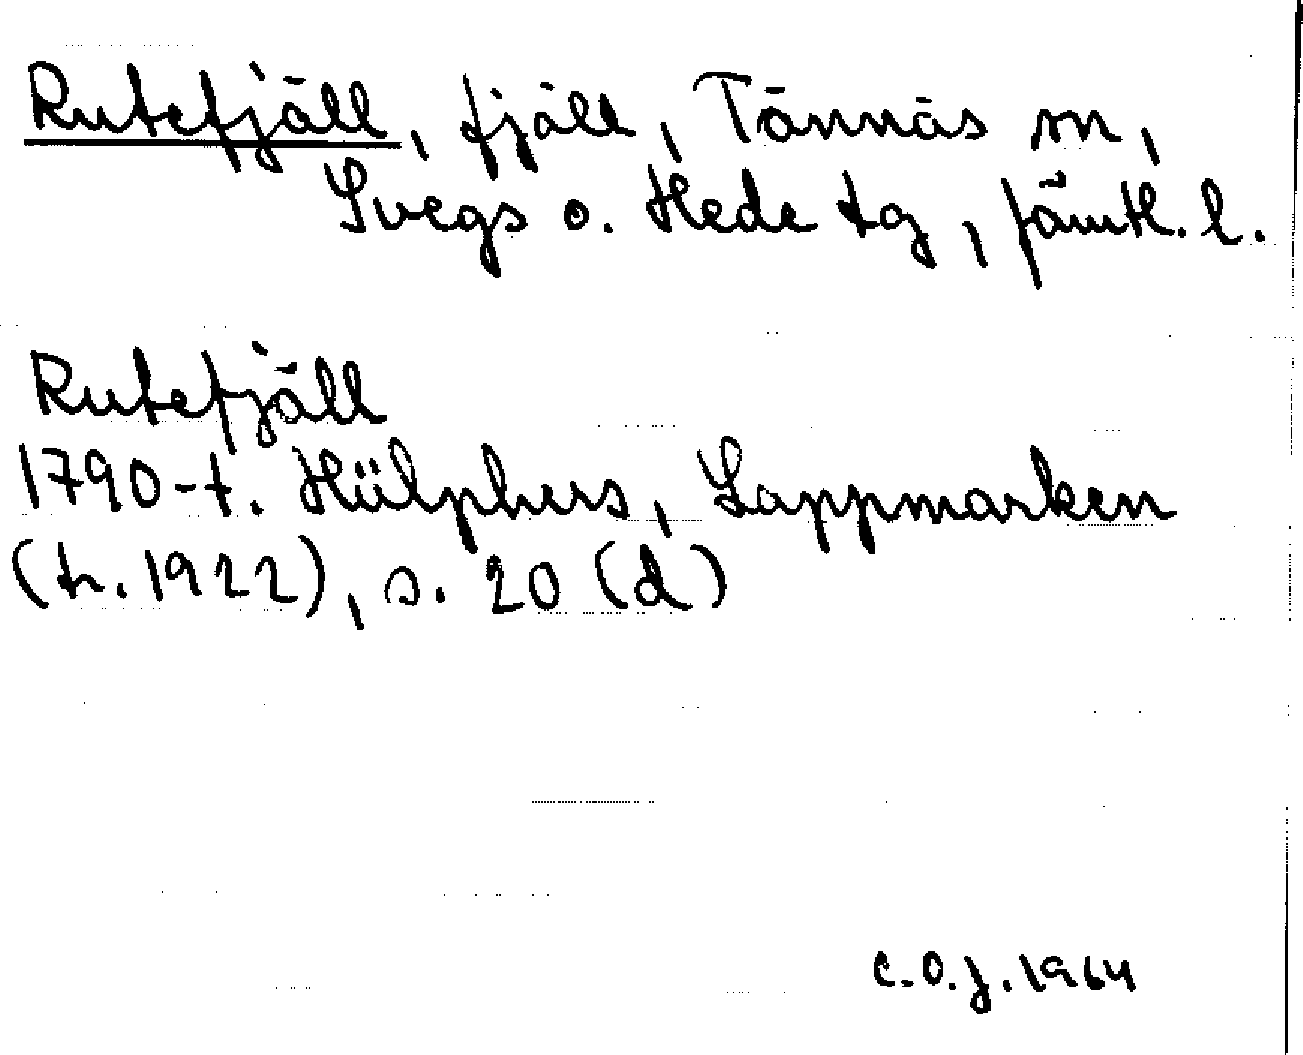 Rutefjäll, fjäll, Tännäs sn,
Svegs o. Hede tg, Jämtl. l.
Rutefjäll
1790-t. Hülphers, Lappmarken
(tr. 1922), s. 20 (d)
C.O.J. 1964